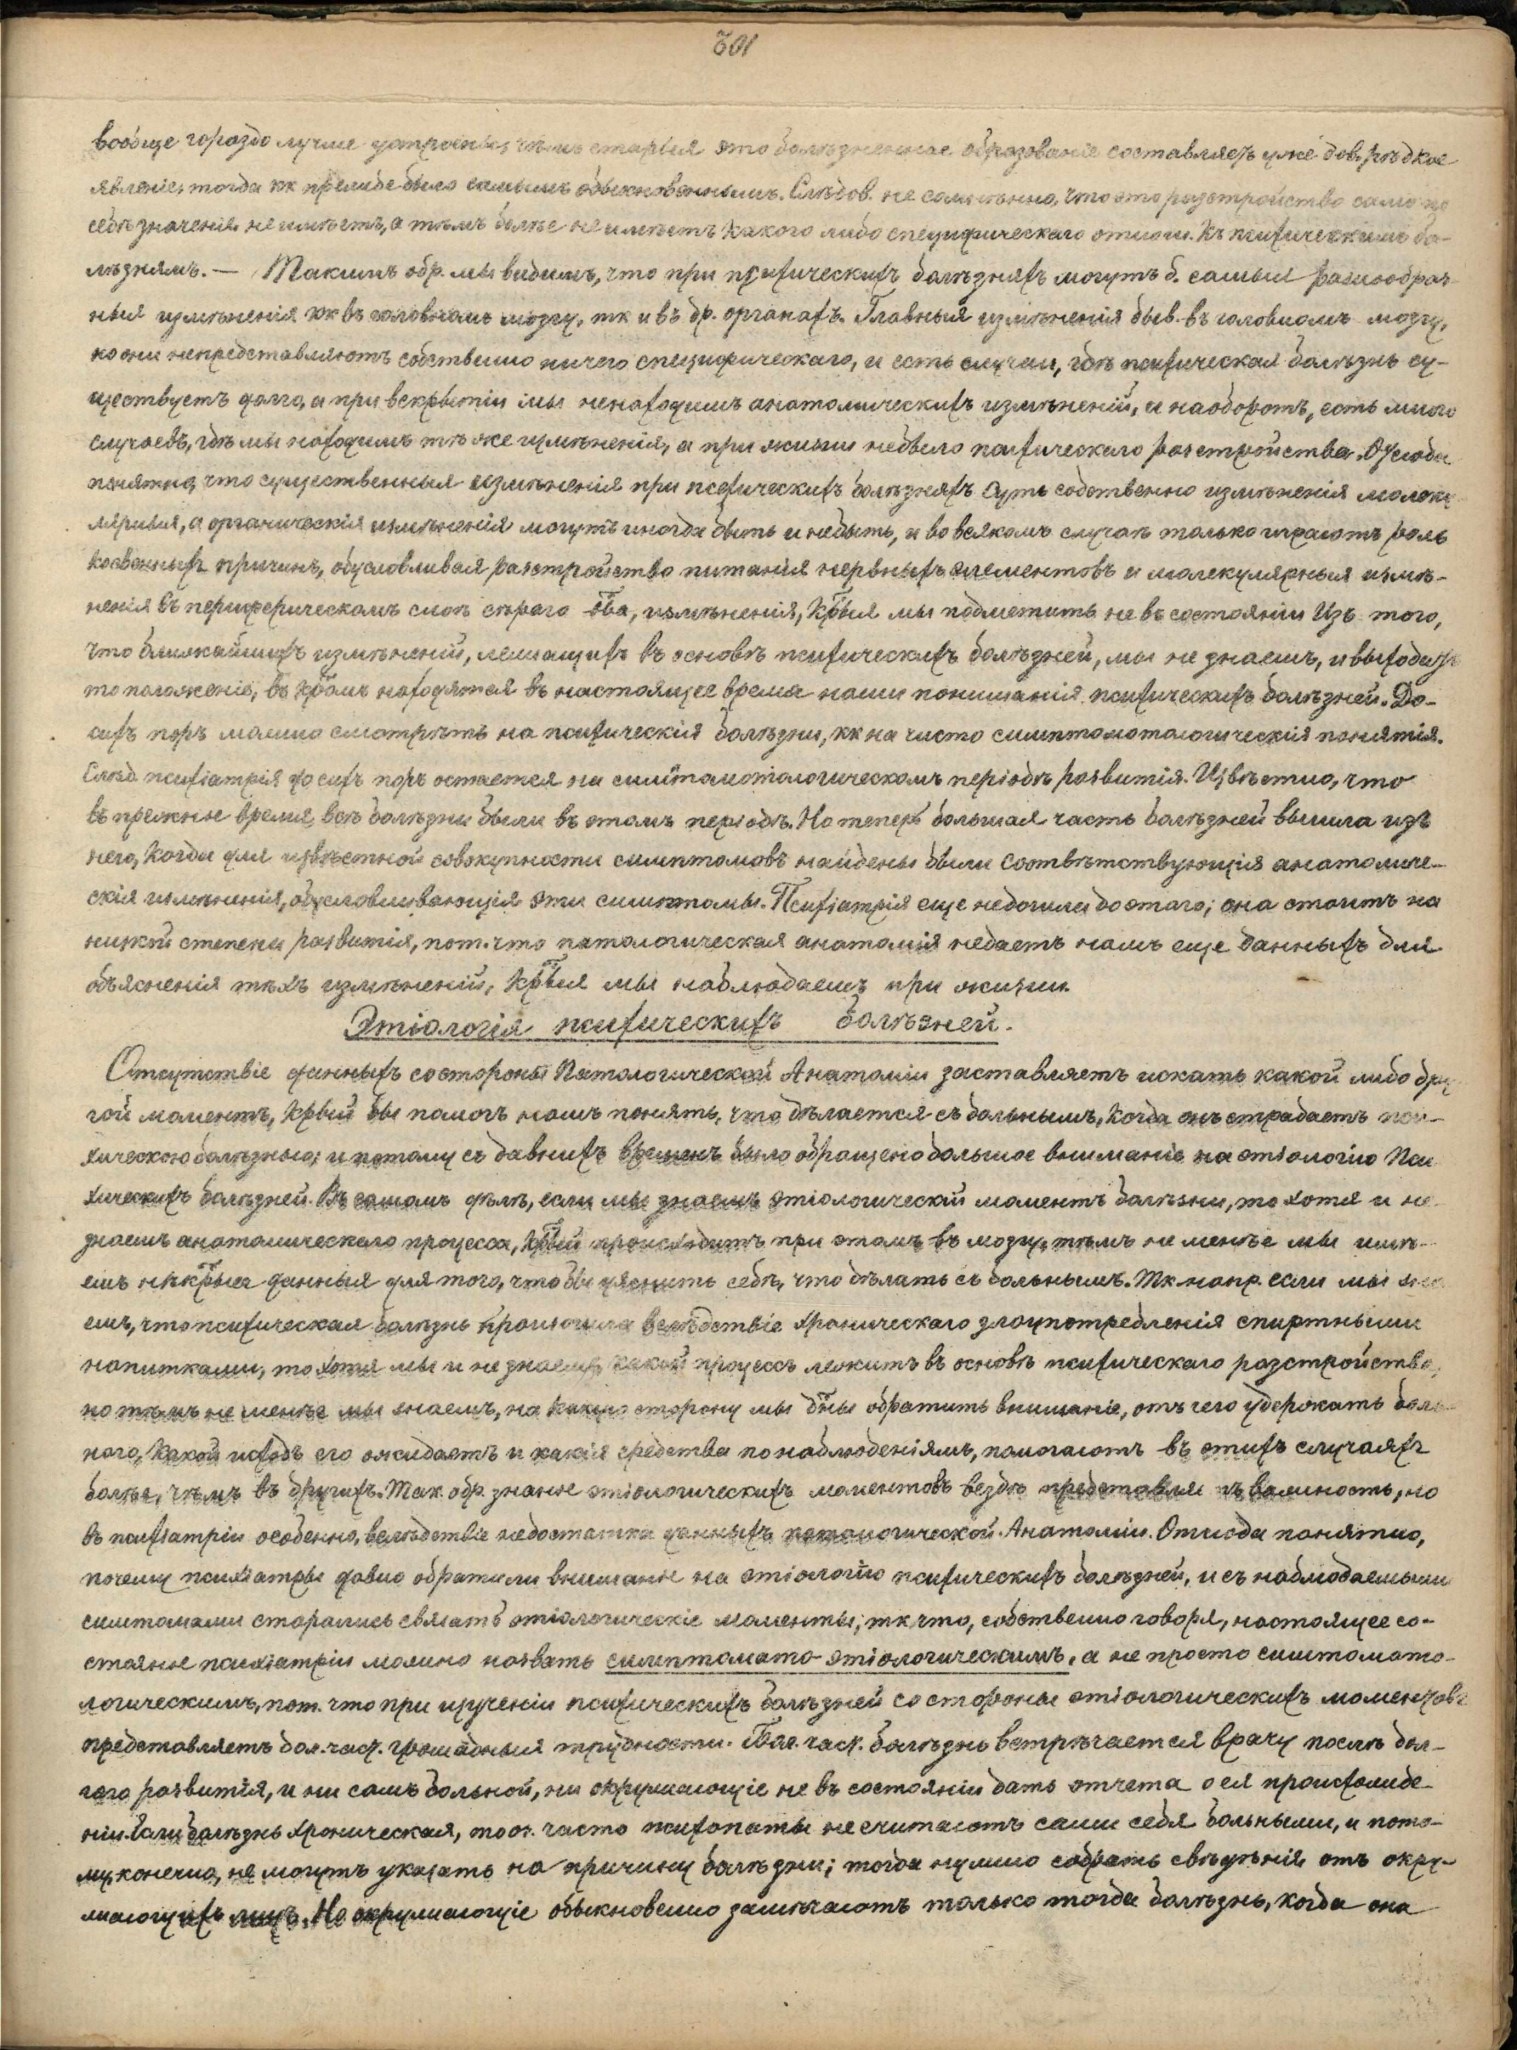 301
вообще гораздо лучше устроены, чѣмъ старыя это болѣзненное образованіе составляетъ уже дов. рѣдкое
явленіе, тогда кк прежде было самымъ обыкновеннымъ. Слѣдов. не сомнѣнно, что это разстройство само по
себѣ значенія не имѣетъ, а тѣмъ болѣе не имѣетъ какого либо специфическаго отнош. къ психическимъ бо-
лѣзнямъ. — Такимъ обр. мы видимъ, что при психическихъ болѣзняхъ могутъ б. самыя разнообраз-
ныя измѣненія кк въ головномъ мозгу, тк и въ др. органахъ. Главныя измѣненія быв. въ головномъ мозгу,
но они непредставляютъ собственно ничего специфическаго, и есть случаи, гдѣ психическая болѣзнь су-
ществуетъ долго, а при вскрытіи мы ненаходимъ анатомическихъ измѣненій, и наоборотъ, есть много
случаевъ, гдѣ мы находимъ тѣ же измѣненія, а при жизни небыло психическаго разстройства. Отсюда
понятно, что существенныя измѣненія при психическихъ болѣзняхъ суть собственно измѣненія молеку
лярныя, а органическія измѣненія могутъ иногда быть и небыть, и во всякомъ случаѣ только играютъ роль
косвенныхъ причинъ, обусловливая разстройство питанія нервныхъ элементовъ и молекулярныя измѣ-
ненія въ периферическомъ слоѣ сѣраго в̅ва, измѣненія, кр̅ыя мы подметить не въ состояніи Изъ того,
что ближайшихъ измѣненій, лежащихъ въ основѣ психическихъ болѣзней, мы не знаемъ, и выходитъ
то положеніе, въ кр̅омъ находятся въ настоящее время наши пониманія психическихъ болѣзней. До-
сихъ поръ можно смотрѣть на психическія болѣзни, кк на чисто симптоматологическія понятія.
Слѣд. психіатрія до сихъ поръ остается на симптоматологическомъ періодѣ развитія. Извѣстно, что
въ прежнее время всѣ болѣзни были въ этомъ періодѣ. Но теперь большая часть болѣзней вышла изъ
него, когда для извѣстной совокупности симптомовъ найдены были соотвѣтствующія анатомиче-
скія измѣненія, обусловливающія эти симптомы. Психіатрія еще недошла до этого; она стоитъ на
низкой степени развитія, пот. что патологическая анатомія недаетъ намъ еще данныхъ для
объясненія тѣхъ измѣненій, кр̅ыя мы наблюдаемъ при жизни.
Этіологія психическихъ болѣзней.
Отсутствіе данныхъ со стороны Патологической Анатоміи заставляетъ искать какой либо дру
гой моментъ, кр̅ый бы помогъ намъ понять, что дѣлается съ больнымъ, когда онъ страдаетъ пси-
хическою болѣзнью; и потому съ давнихъ временъ было обращено большое вниманіе на этіологію Пси
хическихъ болѣзней. Въ самомъ дѣлѣ, если мы знаемъ этіологическій моментъ болѣзни, то хотя и не
знаемъ анатомическаго процесса, кр̅ый происходитъ при этомъ въ мозгу, тѣмъ не менѣе мы имѣ-
емъ нѣкр̅ыя данныя для того, что бы уяснить себѣ, что дѣлать съ больнымъ. Тк напр. если мы зна
емъ, что психическая болѣзнь произошла вслѣдствіе хроническаго злоупотребленія спиртными
напитками, то хотя мы и не знаемъ, какой процессъ лежитъ въ основѣ психическаго разстройства,
но тѣмъ не менѣе мы знаемъ, на какую сторону мы д̅ны обратить вниманіе, отъ чего удержать боль
ного, какой исходъ его ожидаетъ и какія средства по наблюденіямъ, помогаютъ въ этихъ случаяхъ
болѣе, чѣмъ въ другихъ. Так. обр. знаніе этіологическихъ моментовъ вездѣ представляетъ важность, но
въ психіатріи особенно, вслѣдствіе недостатка данныхъ патологической Анатоміи. Отсюда понятно,
почему психіатры давно обратили вниманіе на этіологію психическихъ болѣзней, и съ наблюдаемыми
симтомами старались связать этіологическіе моменты; тк что, собственно говоря, настоящее со-
стояніе психіатріи можно назвать симптомато-этіологическимъ, а не просто симтомато-
логическимъ, пот. что при изученіи психическихъ болѣзней со стороны этіологическихъ моментовъ
представляетъ бол. част. громадныя трудности. Бол. част. болѣзнь встрѣчается врачу послѣ дол-
гаго развитія, и ни самъ больной, ни окружающіе не въ состояніи дать отчета о ея происхожде-
ніи. Если болѣзнь хроническая, то оч. часто психопаты не считаютъ сами себя больными, и пото-
му, конечно, не могутъ указать на причину болѣзни; тогда нужно собрать свѣдѣнія отъ окру-
жающихъ лицъ. Но окружающіе обыкновенно замѣчаютъ только тогда болѣзнь, когда она